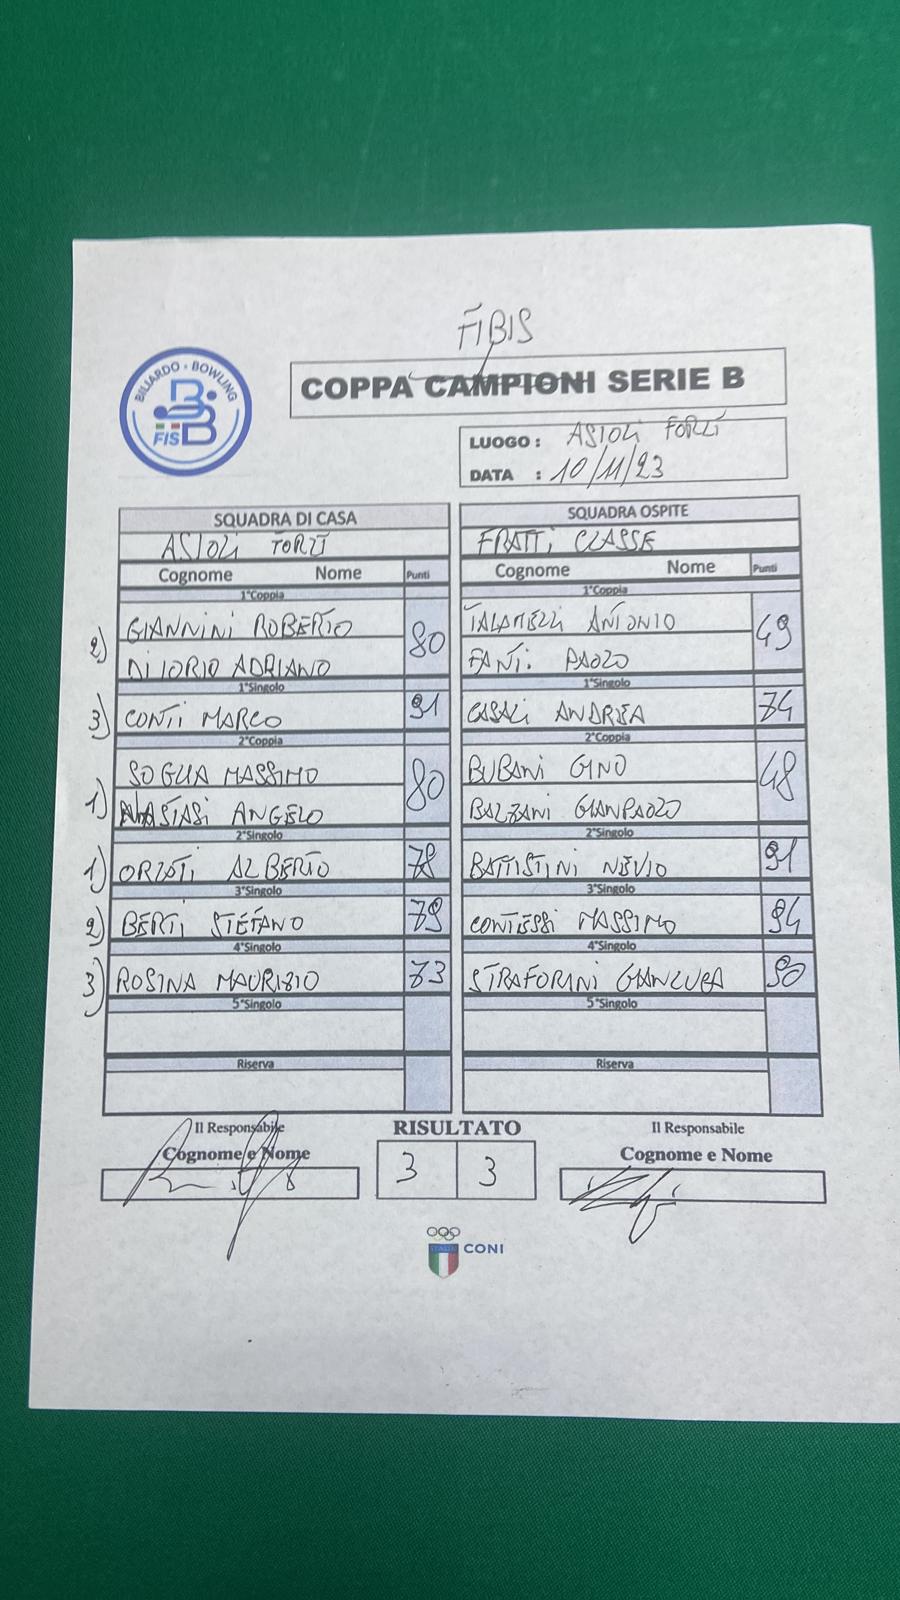 FIBIS
BILIARDO - BOWLING
FISBB
COPPA CAMPIONI SERIE B
LUOGO : ASIOLI FORLÌ
DATA : 10/11/23
SQUADRA DI CASA SQUADRA OSPITE
ASIOLI FORLÌ FRATTI CLASSE
Cognome Nome Punti Cognome Nome Punti
1°Coppia 1°Coppia
2) GIANNINI ROBERTO 80 TALAMELLI ANTONIO 49
DI IORIO ADRIANO FANTI PAOLO
1°Singolo 1°Singolo
3) CONTI MARCO 91 CASALI ANDREA 74
2°Coppia 2°Coppia
SOGLIA MASSIMO 80 BUBANI GINO 48
1) ANASTASI ANGELO BALZANI GIANPAOLO
2°Singolo 2°Singolo
1) ORLATI ALBERTO 78 BATTISTINI NEVIO 91
3°Singolo 3°Singolo
2) BERTI STEFANO 79 CONTESSI MASSIMO 94
4°Singolo 4°Singolo
3) ROSINA MAURIZIO 73 STRAFORINI GIANLUCA 90
5°Singolo 5°Singolo
Riserva Riserva
Il Responsabile RISULTATO Il Responsabile
Cognome e Nome 3 3 Cognome e Nome
ITALIA CONI